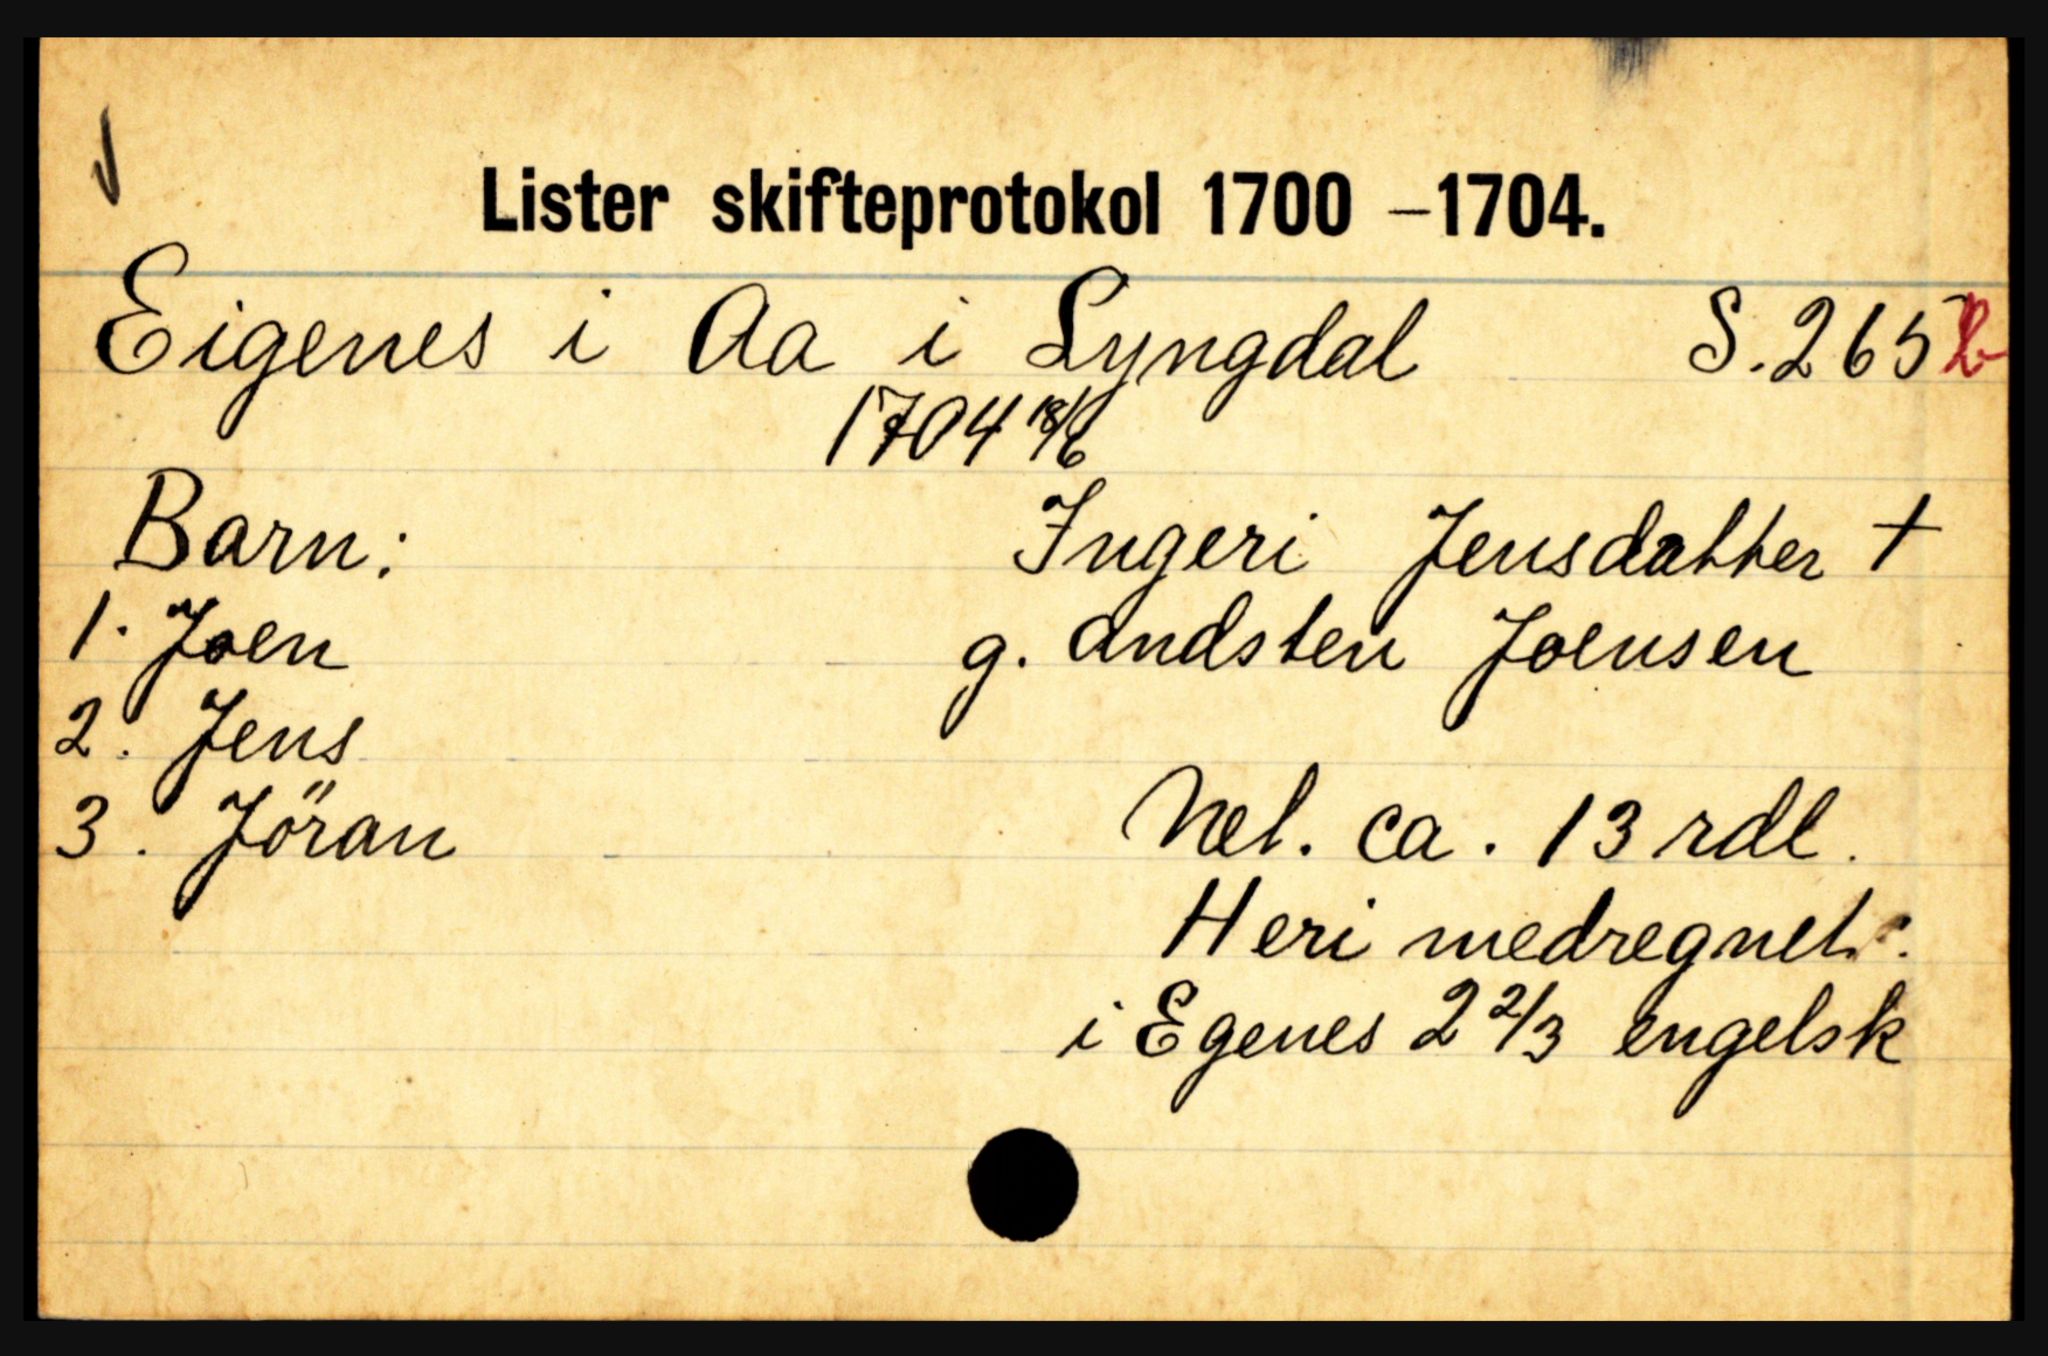 Lister skifteprotokol 1700 – 1704.
Eigenes i Aa i Lyngdal S. 265 b
1704 18/6
Barn: Ingeri Jensdatter †
1. Joen g. Andsten Joensen
2. Jens
3. Jöran Net. ca. 13 rdl.
Heri medregnet
i Egenes 2 2/3 engelsk